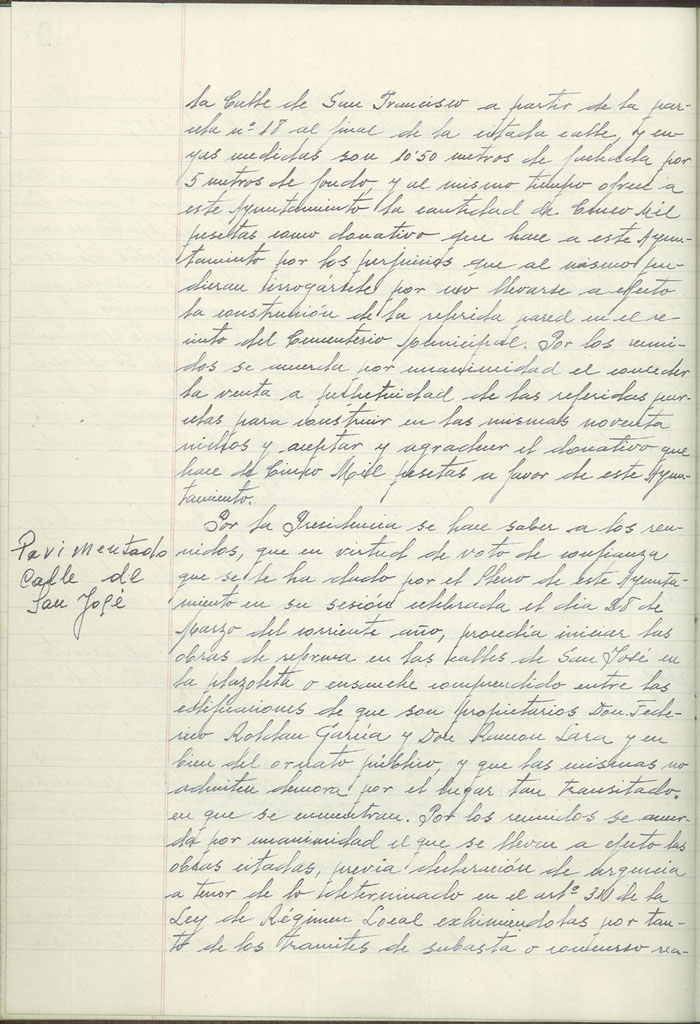 la Calle de San Francisco a partir de la par-
cela nº 18 al final de la citada calle, y cu-
yas medidas son 10'50 metros de fachada por
5 metros de fondo, y al mismo tiempo ofrece a
este Ayuntamiento la cantidad de Cinco Mil
pesetas como donativo que hace a este Ayun-
tamiento por los perjuicios que al mismo pu-
dieran irrogársele por no llevarse a efecto
la construción de la referida pared en el re-
cinto del Cementerio Municipal. Por los reuni-
dos se acuerda por unanimidad el conceder
la venta a perpetuidad de las referidas par-
celas para construir en las mismas noventa
nichos y aceptar y agradecer el donativo que
hace de Cinco Mil pesetas a favor de este Ayun-
tamiento.
Por la Presidencia se hace saber a los reu-
Pavimentado
nidos, que en virtud de voto de confianza
Calle de
que se le ha dado por el Pleno de este Ayunta-
San José
miento en su sesión celebrada el dia 28 de
Marzo del corriente año, procedía iniciar las
obras de reforma en las calles de San José en
la plazoleta o ensanche comprendido entre las
edificaciones de que son propietarios Don Fede-
rico Roldan García y Don Ramon Lara y en
bien del ornato público, y que las mismas no
admiten demora por el lugar tan transitado
en que se encuentran. Por los reunidos se acuer-
da por unanimidad el que se lleven a efecto las
obras citadas, previa declaración de urgencia
a tenor de lo determinado en el artº 311 de la
Ley de Régimen Local eximiendolas por tan-
to de los tramites de subasta o concurso rea-